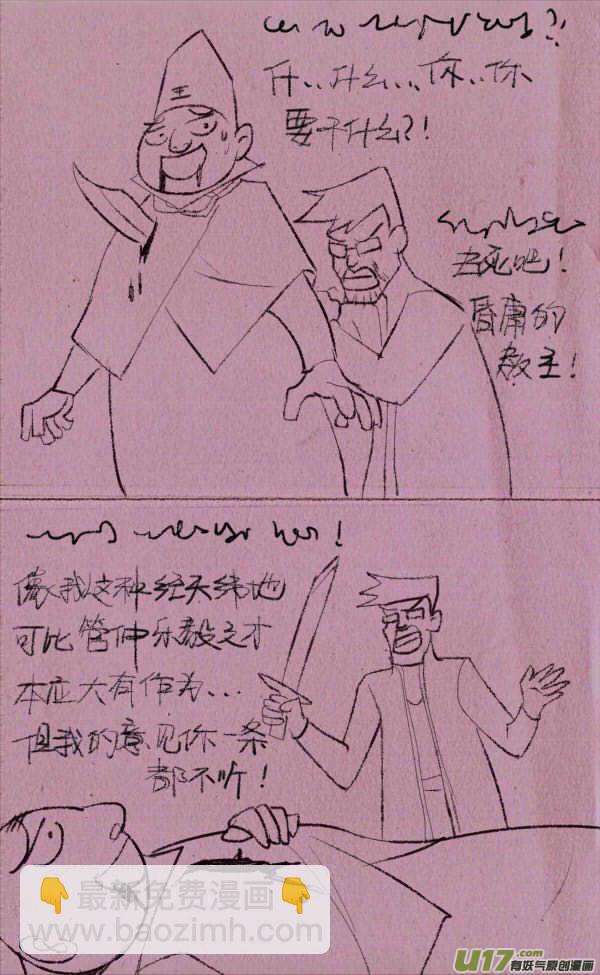 什..什么...你..你
要干什么?!
王
去死吧!
昏庸的
教主!
像我这种经天纬地
可比管仲乐毅之才
本应大有作为...
但我的意见你一条
都不听!
👇最新免费漫画👇
www.baozimh.com
U17.com
有妖气原创漫画